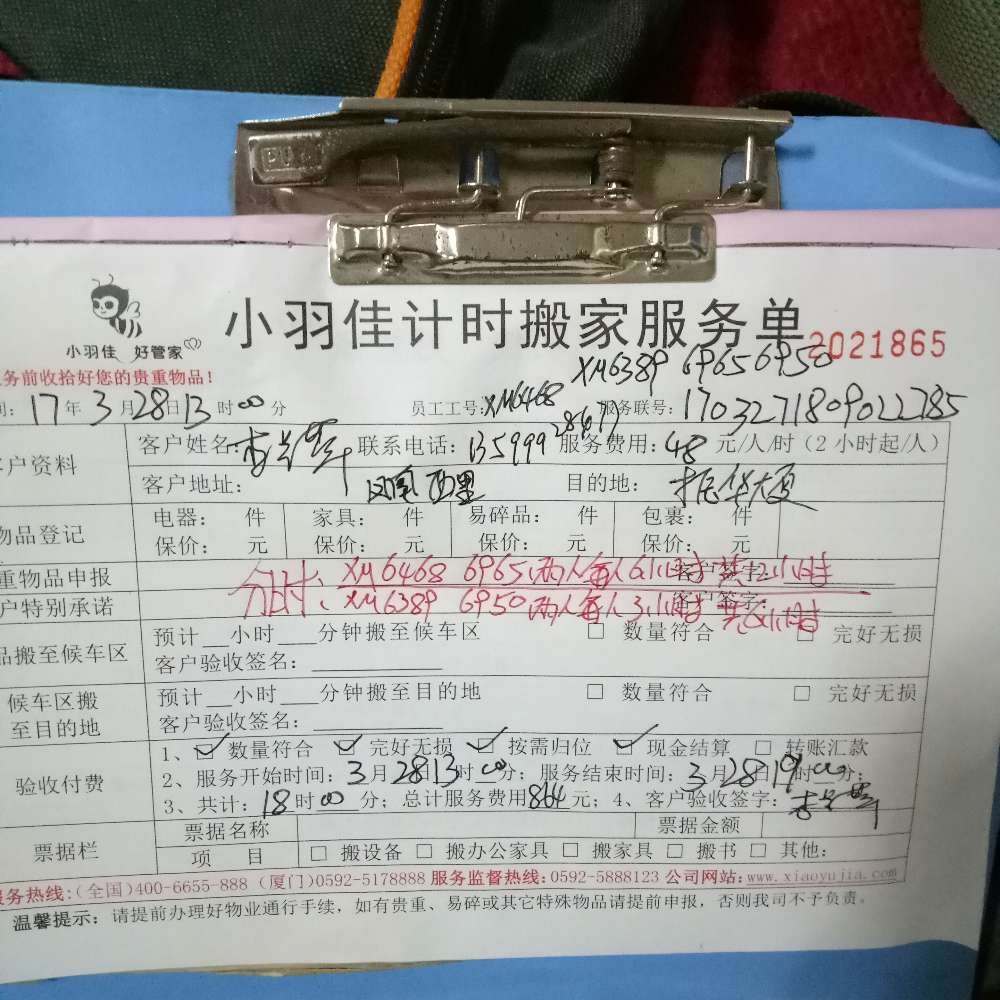 小羽佳 好管家
小羽佳计时搬家服务单 2021865
务前收拾好您的贵重物品！
XM6389 6965 6950
间：17年3月28日13时00分 员工工号：XM6468 服务联号：1703271809022785
户资料 客户姓名： 联系电话：13599928617 服务费用：48元/人/时（2小时起/人）
客户地址：凤凰西里 目的地：振华大厦
物品登记 电器： 件 家具： 件 易碎品： 件 包裹： 件
保价： 元 保价： 元 保价： 元 保价： 元
重物品申报 客户签字：
分时：XM6468 6965两人每人6小时共12小时
户特别承诺 客户签字：
分时：XM6389 6950两人每人3小时共6小时
品搬至候车区 预计__小时___分钟搬至候车区 □ 数量符合 □ 完好无损
客户验收签名：
候车区搬至目的地 预计__小时___分钟搬至目的地 □ 数量符合 □ 完好无损
客户验收签名：
验收付费 1、☑ 数量符合 ☑ 完好无损 ☑ 按需归位 ☑ 现金结算 □ 转账汇款
2、服务开始时间：3月28日13时00分；服务结束时间：3月28日19时00分；
3、共计：18时00分；总计服务费用864元；4、客户验收签字：
票据栏 票据名称 票据金额
项 目 □ 搬设备 □ 搬办公家具 □ 搬家具 □ 搬书 □ 其他：
服务热线：(全国)400-6655-888 (厦门)0592-5178888 服务监督热线：0592-5888123 公司网站：www.xiaoyujia.com
温馨提示：请提前办理好物业通行手续，如有贵重、易碎或其它特殊物品请提前申报，否则我司不予负责。